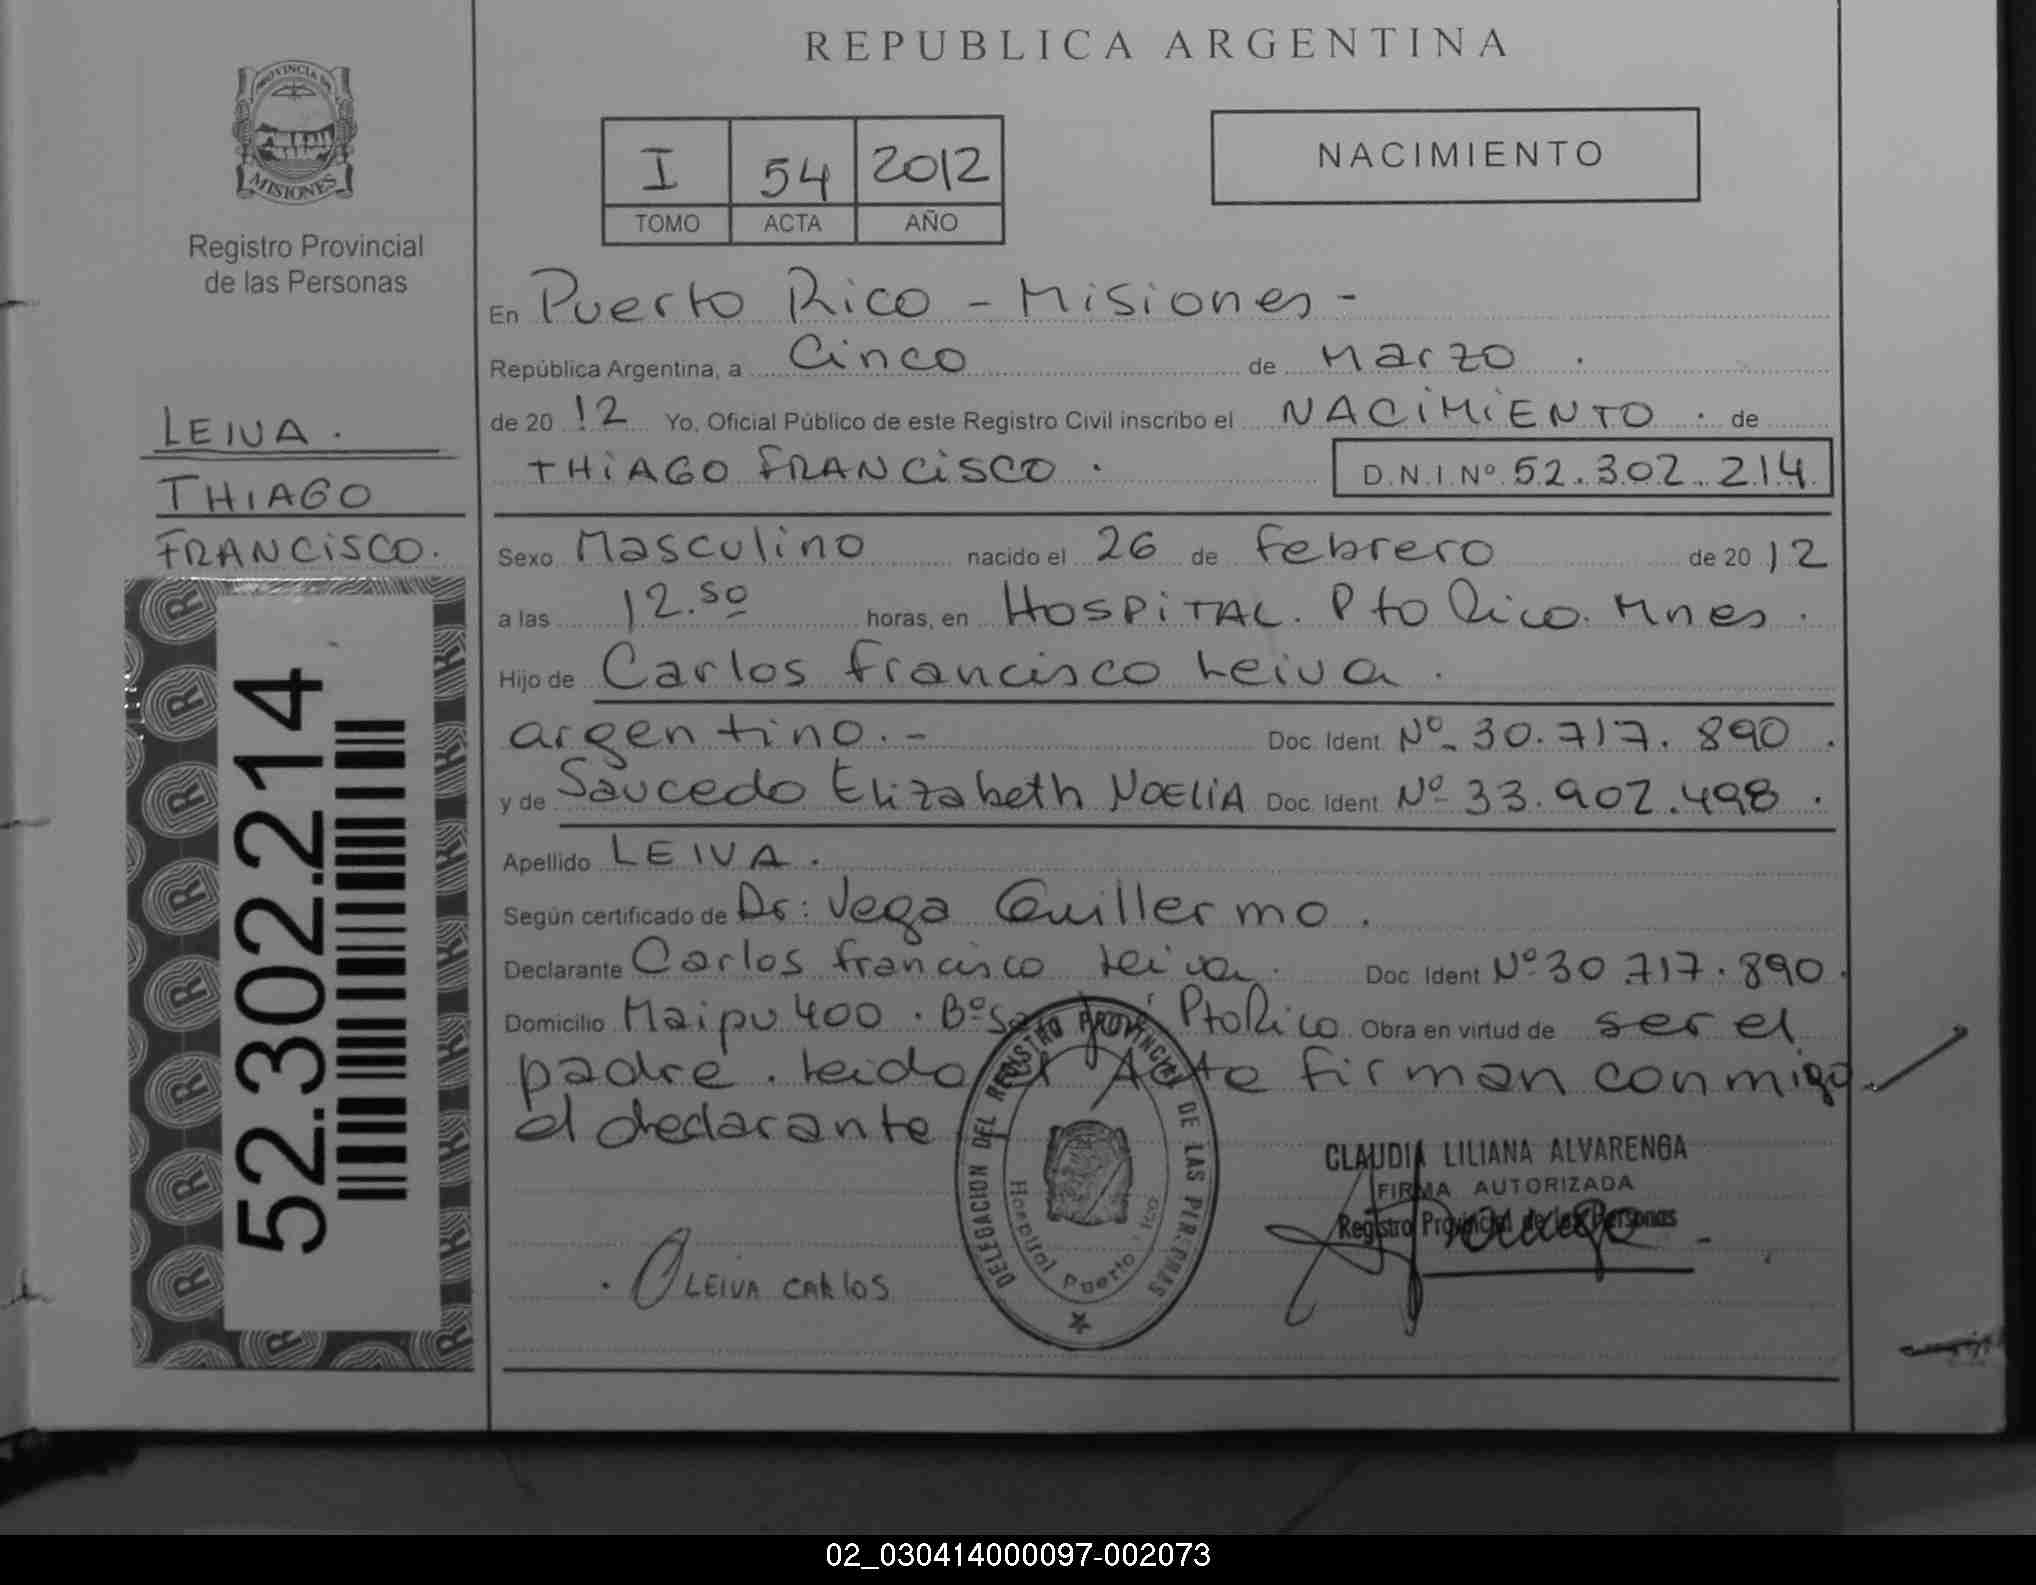 REPUBLICA ARGENTINA
PROVINCIA DE
MISIONES
Registro Provincial
de las Personas
I 54 2012
TOMO ACTA AÑO
NACIMIENTO
En Puerto Rico - Misiones -
República Argentina, a Cinco de Marzo .
de 20 12 Yo, Oficial Público de este Registro Civil inscribo el NACIMIENTO . de
THIAGO FRANCISCO . D.N.I.Nº 52.302.214
LEIVA .
THIAGO
FRANCISCO.
Sexo Masculino nacido el 26 de Febrero de 20 12
a las 12.50 horas, en HOSPITAL. Pto Rico. Mnes .
Hijo de Carlos Francisco Leiva .
argentino. - Doc. Ident. Nº 30.717.890 .
y de Saucedo Elizabeth NOELIA Doc. Ident. Nº 33.902.498 .
Apellido LEIVA .
Según certificado de Dr: Vega Guillermo .
Declarante Carlos Francisco Leiva . Doc. Ident Nº 30.717.890.
Domicilio Maipu 400 . Bº PtoRico Obra en virtud de ser el
padre . Leido el Acta firman conmigo
el declarante
52.302.214
DELEGACION DEL REGISTRO PROVINCIAL DE LAS PERSONAS
Hospital Puerto Rico
LEIVA CARLOS
CLAUDIA LILIANA ALVARENGA
FIRMA AUTORIZADA
Registro Provincial de las Personas
02_030414000097-002073